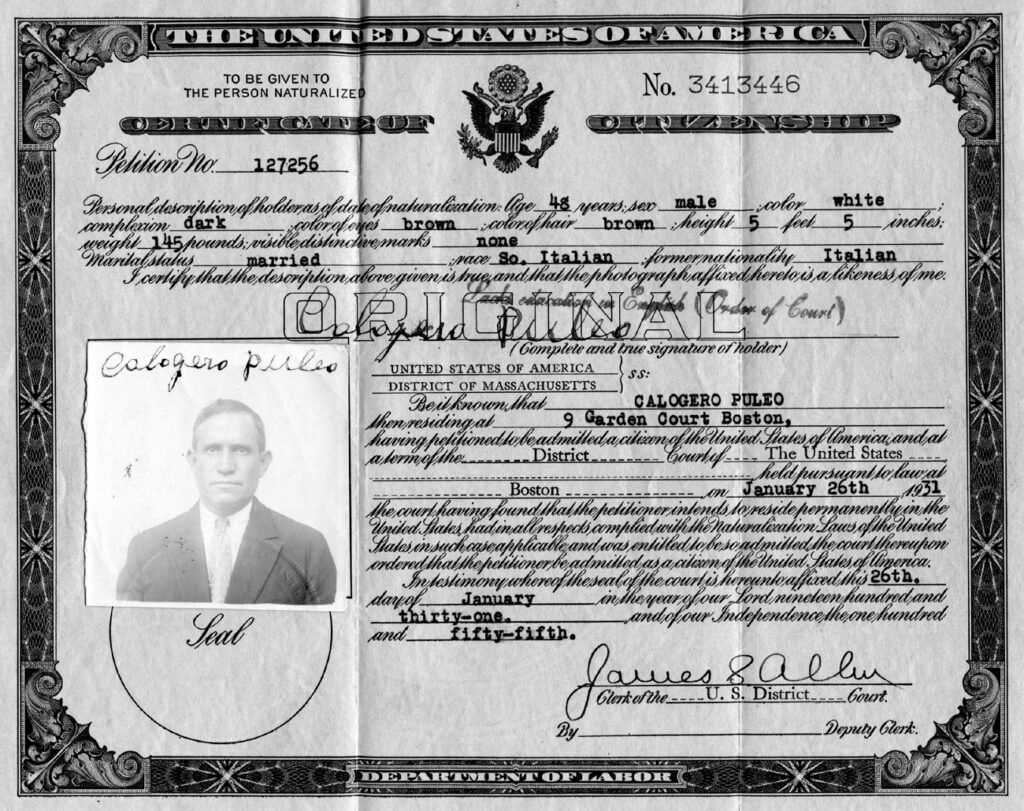 THE UNITED STATES OF AMERICA
TO BE GIVEN TO
THE PERSON NATURALIZED
No. 3413446
CERTIFICATE OF CITIZENSHIP
Petition No. 127256
Personal description of holder as of date of naturalization: Age 48 years; sex male ; color white ;
complexion dark ; color of eyes brown ; color of hair brown ; height 5 feet 5 inches;
weight 145 pounds; visible distinctive marks none
Marital status married ; race So. Italian ; former nationality Italian
I certify that the description above given is true, and that the photograph affixed hereto is a likeness of me.
education in English (Order of Court)
ORIGINAL
Calogero Puleo
(Complete and true signature of holder)
Calogero Puleo
UNITED STATES OF AMERICA
DISTRICT OF MASSACHUSETTS
ss:
Be it known, that CALOGERO PULEO
then residing at 9 Garden Court Boston,
having petitioned to be admitted a citizen of the United States of America, and at
a term of the District Court of The United States
held pursuant to law at
Boston on January 26th 1931
the court having found that the petitioner intends to reside permanently in the
United States, had in all respects complied with the Naturalization Laws of the United
States in such case applicable, and was entitled to be so admitted, the court thereupon
ordered that the petitioner be admitted as a citizen of the United States of America.
In testimony whereof the seal of the court is hereunto affixed this 26th.
day of January in the year of our Lord nineteen hundred and
thirty-one. and of our Independence the one hundred
and fifty-fifth.
Seal
James S Allen
Clerk of the U. S. District Court.
By Deputy Clerk.
DEPARTMENT OF LABOR